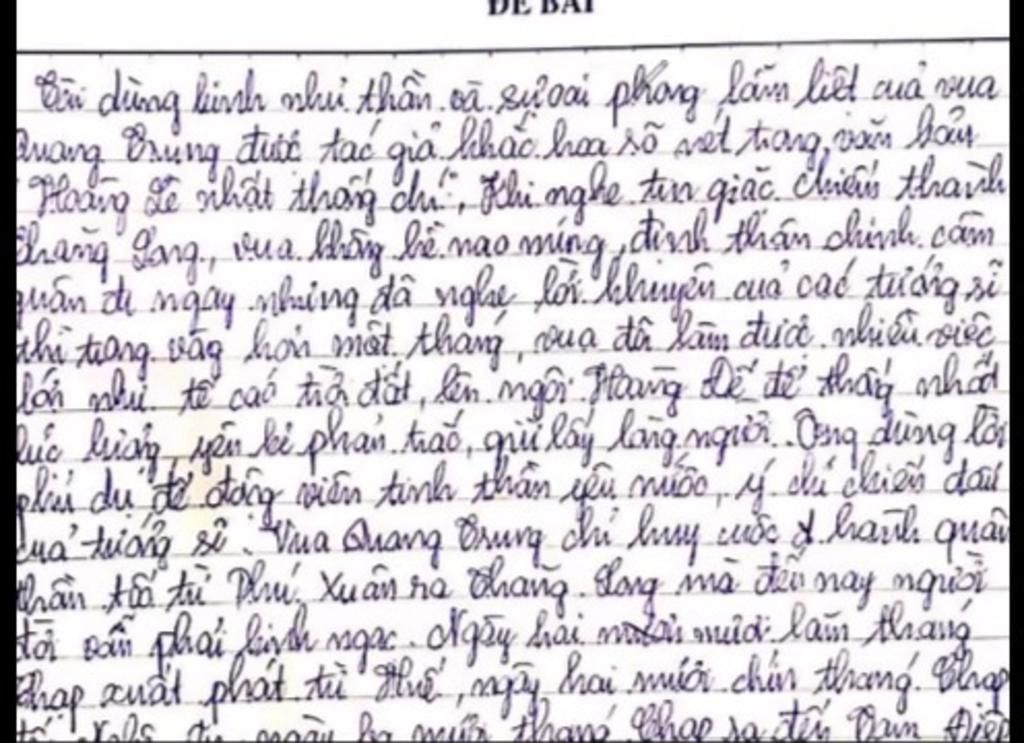 ĐỀ BÀI
Tài dùng binh như thần và sự oai phong lẫm liệt của vua
Quang Trung được tác giả khắc hoạ rõ nét trong văn bản
"Hoàng Lê nhất thống chí". Khi nghe tin giặc chiếm thành
Thăng Long, vua không hề nao núng, định thân chinh cầm
quân đi ngay nhưng đã nghe lời khuyên của các tướng sĩ
chỉ trong vòng hơn một tháng, vua đã làm được nhiều việc
lớn như tế cáo trời đất, lên ngôi Hoàng Đế để thống nhất
lực lượng yên kẻ phản trắc, giữ lấy lòng người. Ông dùng lời
phủ dụ để động viên tinh thần yêu nước, ý chí chiến đấu
của tướng sĩ. Vua Quang Trung chỉ huy cuộc hành quân
thần tốc từ Phú Xuân ra Thăng Long mà đến nay người
đời vẫn phải kinh ngạc. Ngày hai mươi lăm tháng
Chạp xuất phát từ Huế, ngày hai mươi chín tháng Chạp
tới Nghệ ngày ba mươi tháng Chạp ra đến Tam Điệp